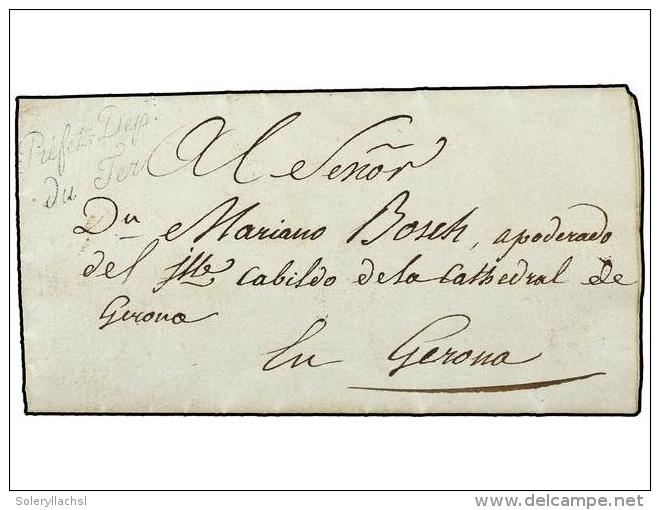 Préfet. Dep.t
du Ter
Al Señor
Dn Mariano Bosch, apoderado
del Iltre Cabildo de la Cathedral de
Gerona
En Gerona
Soleryllachsl
delcampe.net